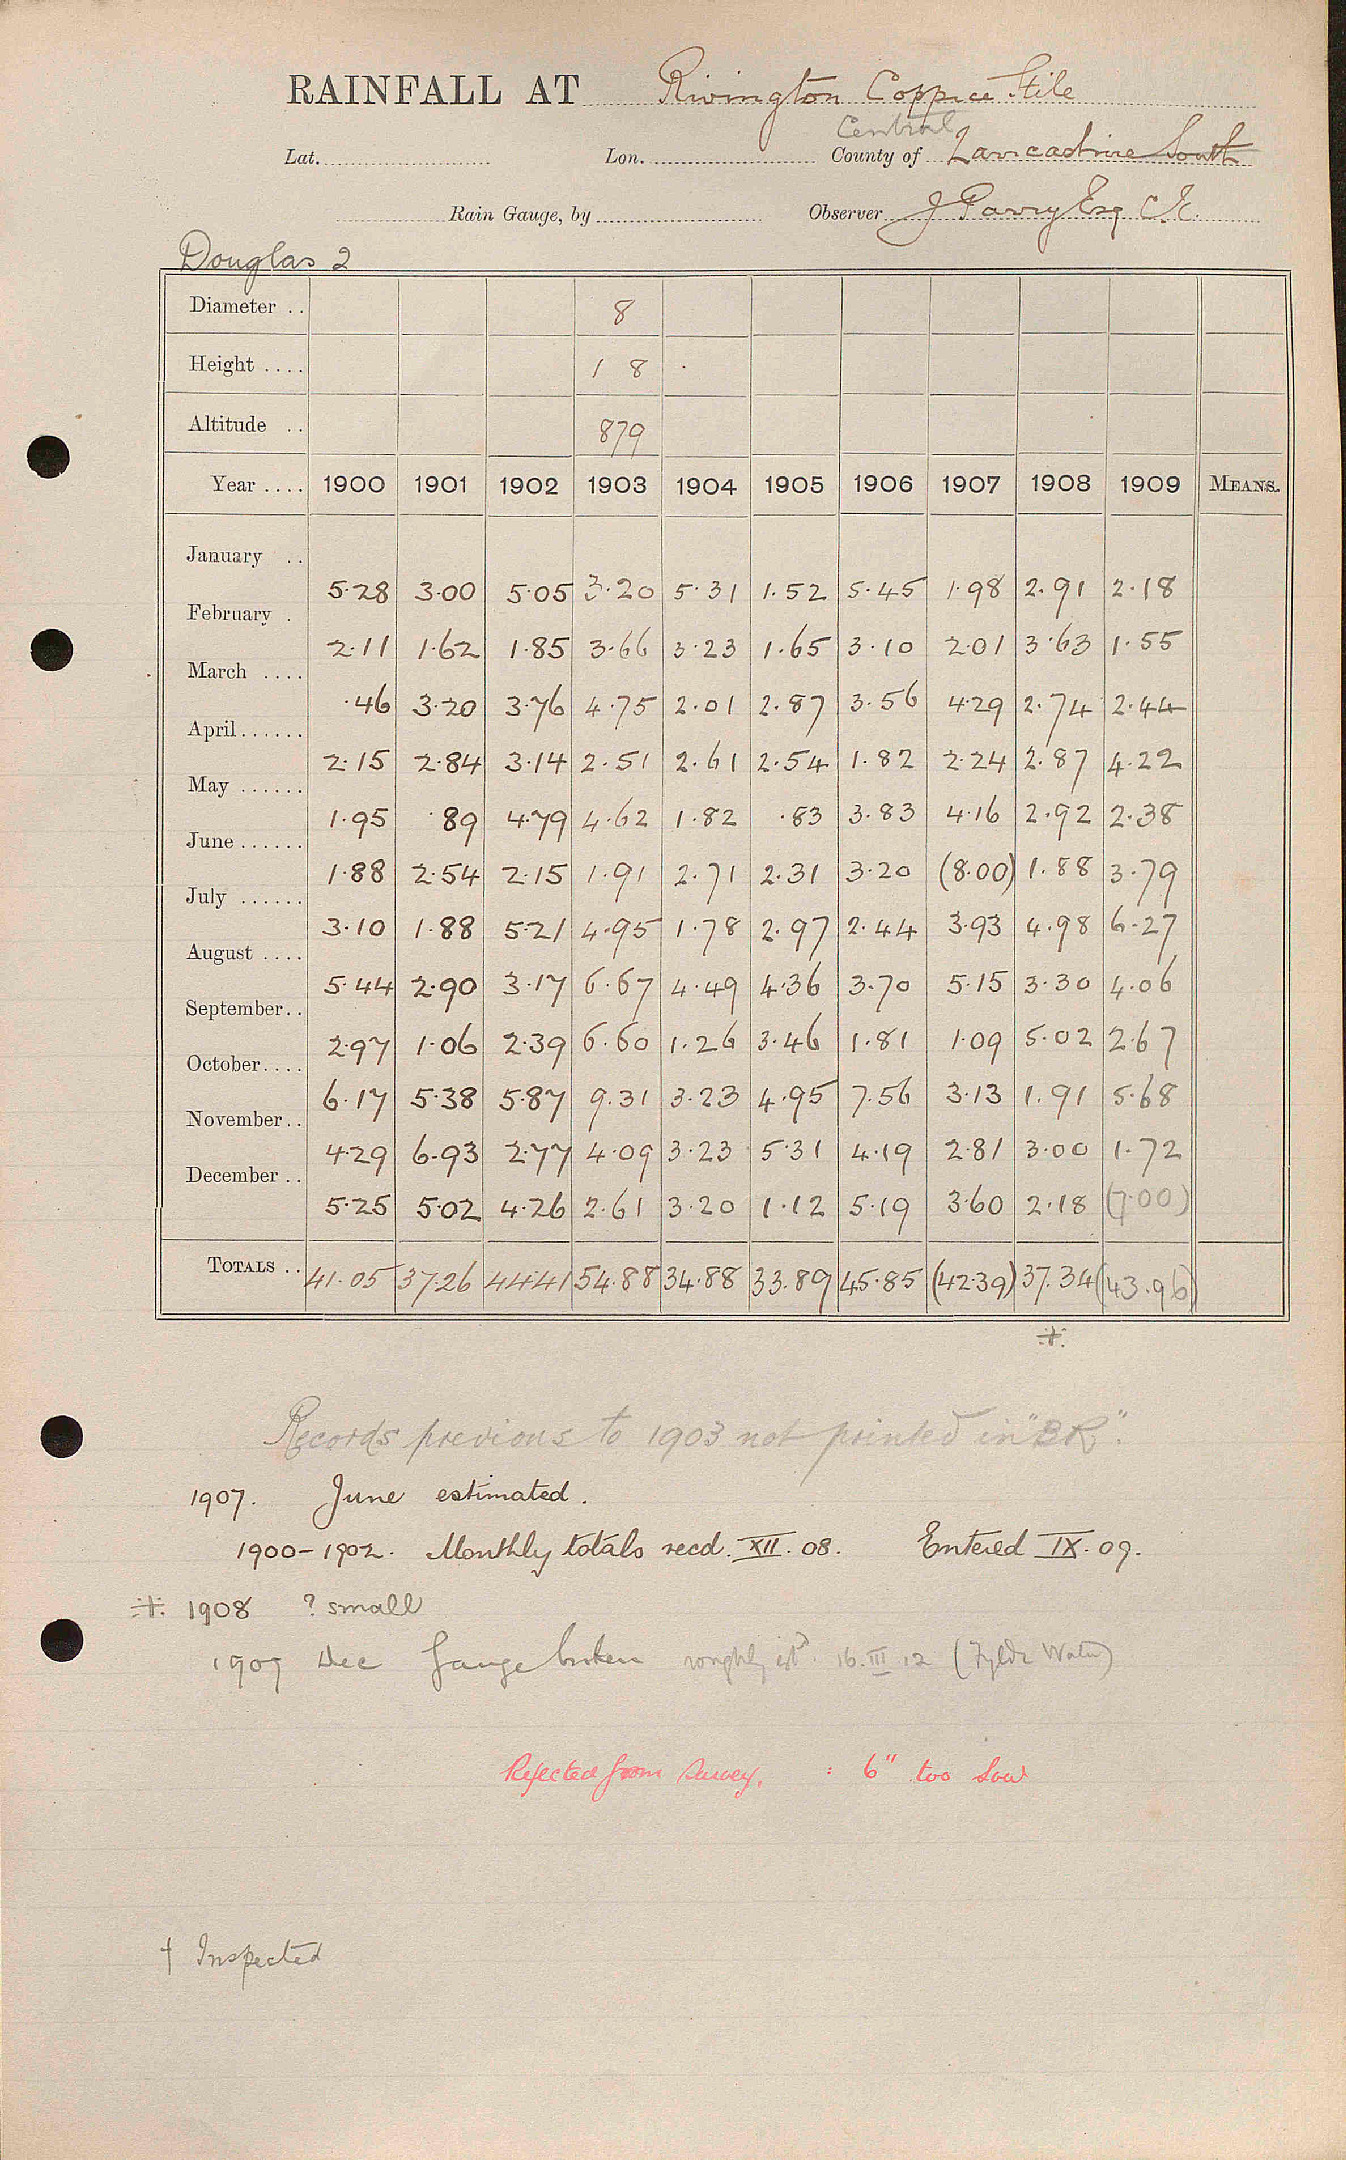 RAINFALL AT Rivington Coppice Stile
Central
Lat. Lon. County of Lancashire South
Rain Gauge, by Observer J Parry Esq C.E.
Douglas 2
Diameter .. 8
Height .... 1 8
Altitude .. 879
Year .... 1900 1901 1902 1903 1904 1905 1906 1907 1908 1909 MEANS.
January .. 5.28 3.00 5.05 3.20 5.31 1.52 5.45 1.98 2.91 2.18
February . 2.11 1.62 1.85 3.66 3.23 1.65 3.10 2.01 3.63 1.55
March .... .46 3.20 3.76 4.75 2.01 2.87 3.56 4.29 2.74 2.44
April...... 2.15 2.84 3.14 2.51 2.61 2.54 1.82 2.24 2.87 4.22
May ...... 1.95 .89 4.79 4.62 1.82 .83 3.83 4.16 2.92 2.38
June...... 1.88 2.54 2.15 1.91 2.71 2.31 3.20 (8.00) 1.88 3.79
July ...... 3.10 1.88 5.21 4.95 1.78 2.97 2.44 3.93 4.98 6.27
August .... 5.44 2.90 3.17 6.67 4.49 4.36 3.70 5.15 3.30 4.06
September.. 2.97 1.06 2.39 6.60 1.26 3.46 1.81 1.09 5.02 2.67
October.... 6.17 5.38 5.87 9.31 3.23 4.95 7.56 3.13 1.91 5.68
November.. 4.29 6.93 2.77 4.09 3.23 5.31 4.19 2.81 3.00 1.72
December .. 5.25 5.02 4.26 2.61 3.20 1.12 5.19 3.60 2.18 (7.00)
TOTALS .. 41.05 37.26 44.41 54.88 34.88 33.89 45.85 (42.39) 37.34 (43.96)
Records previous to 1903 not printed in "BR".
1907. June estimated.
1900-1902. Monthly totals recd. XII. 08. Entered IX. 09.
1908 ? small
1909 Dec Gauge broken roughly estd. 16.III.12 (Fylde Water)
Rejected from Survey. : 6" too low
† Inspected